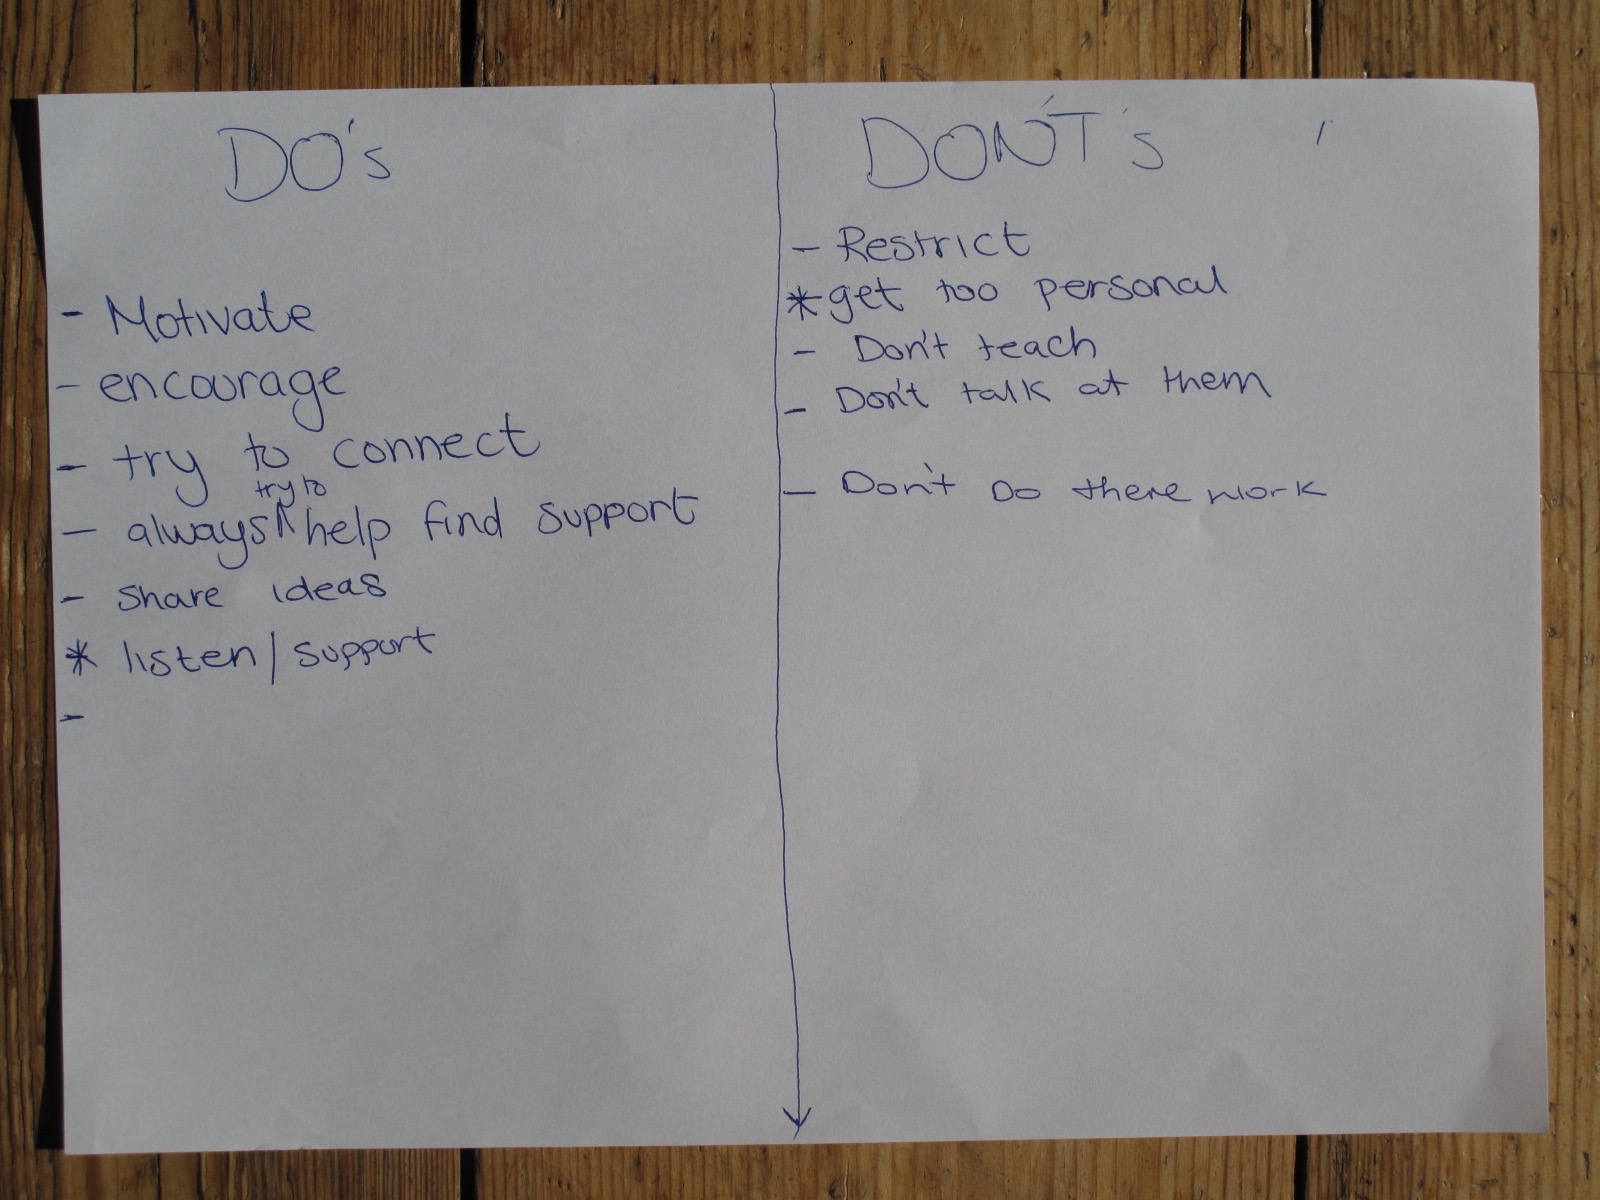 DO's
- Motivate
- encourage
- try to connect
- always try to help find support
- share ideas
* listen/support
-
DON'T's
- Restrict
* get too personal
- Don't teach
- Don't talk at them
- Don't Do there work